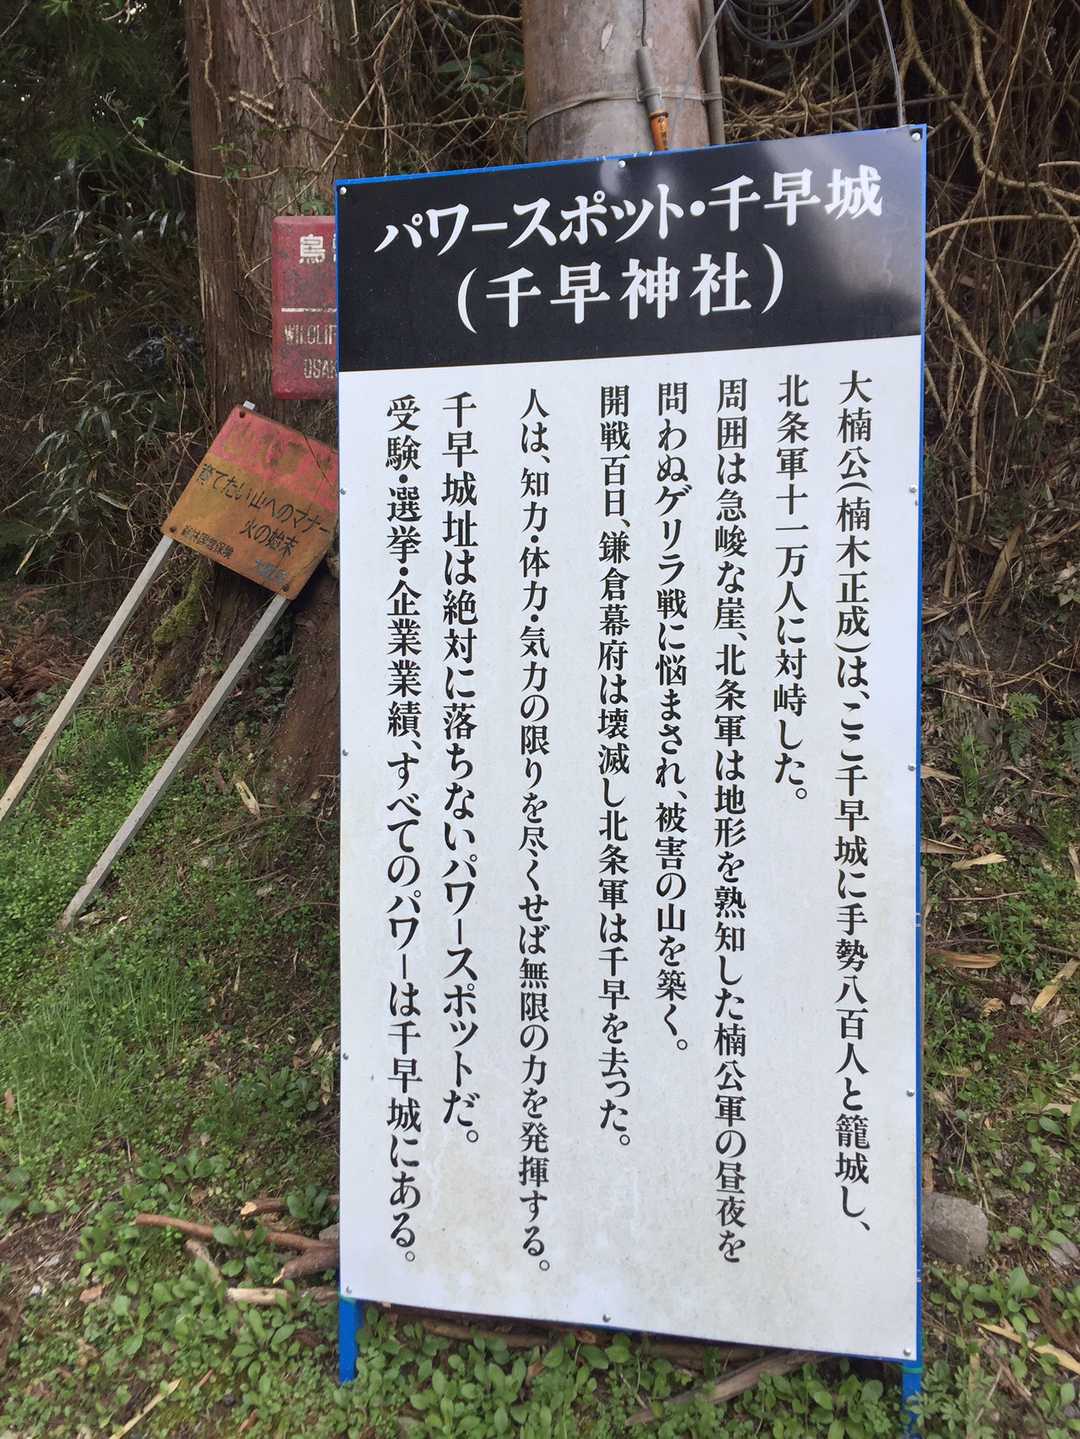 パワースポット・千早城
(千早神社)
大楠公(楠木正成)は、ここ千早城に手勢八百人と籠城し、
北条軍十一万人に対峙した。
周囲は急峻な崖、北条軍は地形を熟知した楠公軍の昼夜を
問わぬゲリラ戦に悩まされ、被害の山を築く。
開戦百日、鎌倉幕府は壊滅し北条軍は千早を去った。
人は、知力・体力・気力の限りを尽くせば無限の力を発揮する。
千早城址は絶対に落ちないパワースポットだ。
受験・選挙・企業業績、すべてのパワーは千早城にある。
鳥
WILDLIF
OSAK
育てたい山へのマナー
火の始末